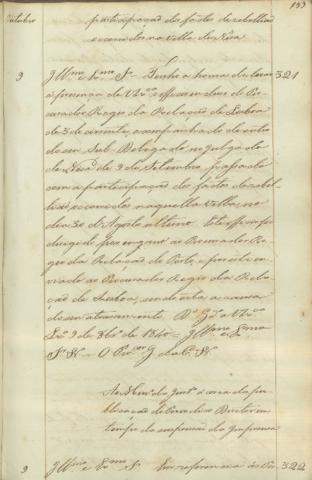 153
Outubro
participação do facto de rebellião
occorrido na villa de Niza
9 Illmo e Exmo Sr Tenho a honra de levar 321
á presença de VExa o officio incluso do Pro-
curador Regio da Relação de Lisboa
de 3 do corrente, acompanhado do outro
do seu Sub-Delegado no julgado
de Niza de 9 de Setembro, passado
com a participação do facto de rebel-
lião occorrido naquella Villa, no
dia 30 d'Agosto ultimo. Este officio foi
dirigido por engano ao Procurador Re-
gio da Relação do Porto, e por este en-
viado ao Procurador Regio da Rela-
ção de Lisboa, sendo esta a causa
do seu atrasamento. Ds Ge a VExa
Lxa 9 de 8bro de 1840 = Illmo e Exmo
Sr = O Pror G da Cª
Ao da Just á cerca da pu-
blicação de Periodicos em
tempo da suspensão da Imprensa
9 Illmo e Exmo Sr Em referencia ás 322